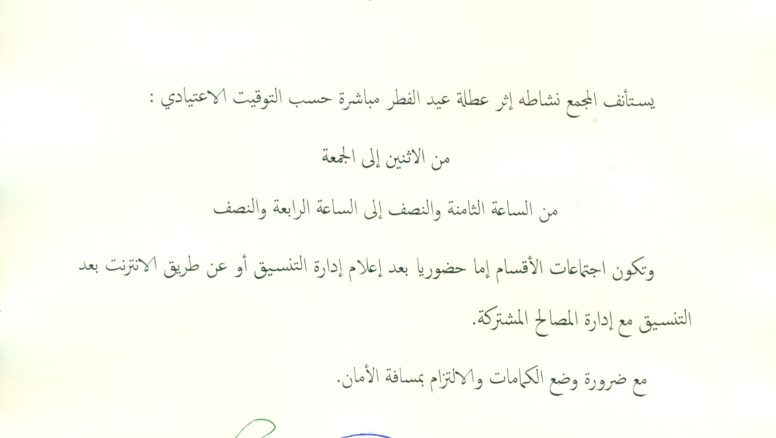 يستأنف المجمع نشاطه إثر عطلة عيد الفطر مباشرة حسب التوقيت الاعتيادي :
من الاثنين إلى الجمعة
من الساعة الثامنة والنصف إلى الساعة الرابعة والنصف
وتكون اجتماعات الأقسام إما حضوريا بعد إعلام إدارة التنسيق أو عن طريق الانترنت بعد
التنسيق مع إدارة المصالح المشتركة.
مع ضرورة وضع الكمامات والالتزام بمسافة الأمان.